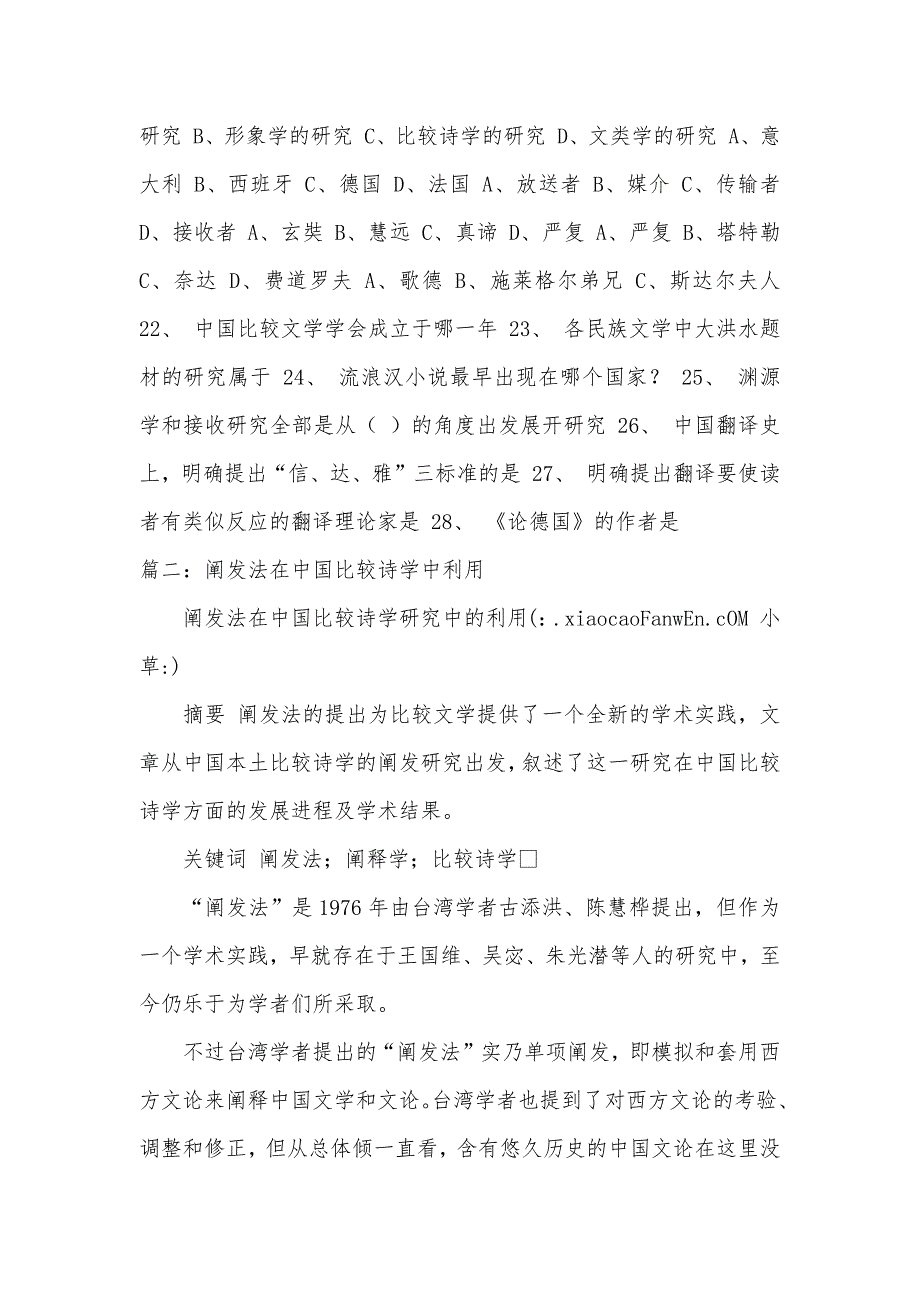 研究 B、形象学的研究 C、比较诗学的研究 D、文类学的研究 A、意
大利 B、西班牙 C、德国 D、法国 A、放送者 B、媒介 C、传输者
D、接收者 A、玄奘 B、慧远 C、真谛 D、严复 A、严复 B、塔特勒
C、奈达 D、费道罗夫 A、歌德 B、施莱格尔弟兄 C、斯达尔夫人
22、 中国比较文学学会成立于哪一年 23、 各民族文学中大洪水题
材的研究属于 24、 流浪汉小说最早出现在哪个国家？ 25、 渊源
学和接收研究全部是从（ ）的角度出发展开研究 26、 中国翻译史
上，明确提出“信、达、雅”三标准的是 27、 明确提出翻译要使读
者有类似反应的翻译理论家是 28、 《论德国》的作者是
篇二：阐发法在中国比较诗学中利用
阐发法在中国比较诗学研究中的利用(：.xiaocaoFanwEn.cOM 小
草:)
摘要 阐发法的提出为比较文学提供了一个全新的学术实践，文
章从中国本土比较诗学的阐发研究出发，叙述了这一研究在中国比较
诗学方面的发展进程及学术结果。
关键词 阐发法；阐释学；比较诗学□
“阐发法”是 1976 年由台湾学者古添洪、陈慧桦提出，但作为
一个学术实践，早就存在于王国维、吴宓、朱光潜等人的研究中，至
今仍乐于为学者们所采取。
不过台湾学者提出的“阐发法”实乃单项阐发，即模拟和套用西
方文论来阐释中国文学和文论。台湾学者也提到了对西方文论的考验、
调整和修正，但从总体倾一直看，含有悠久历史的中国文论在这里没